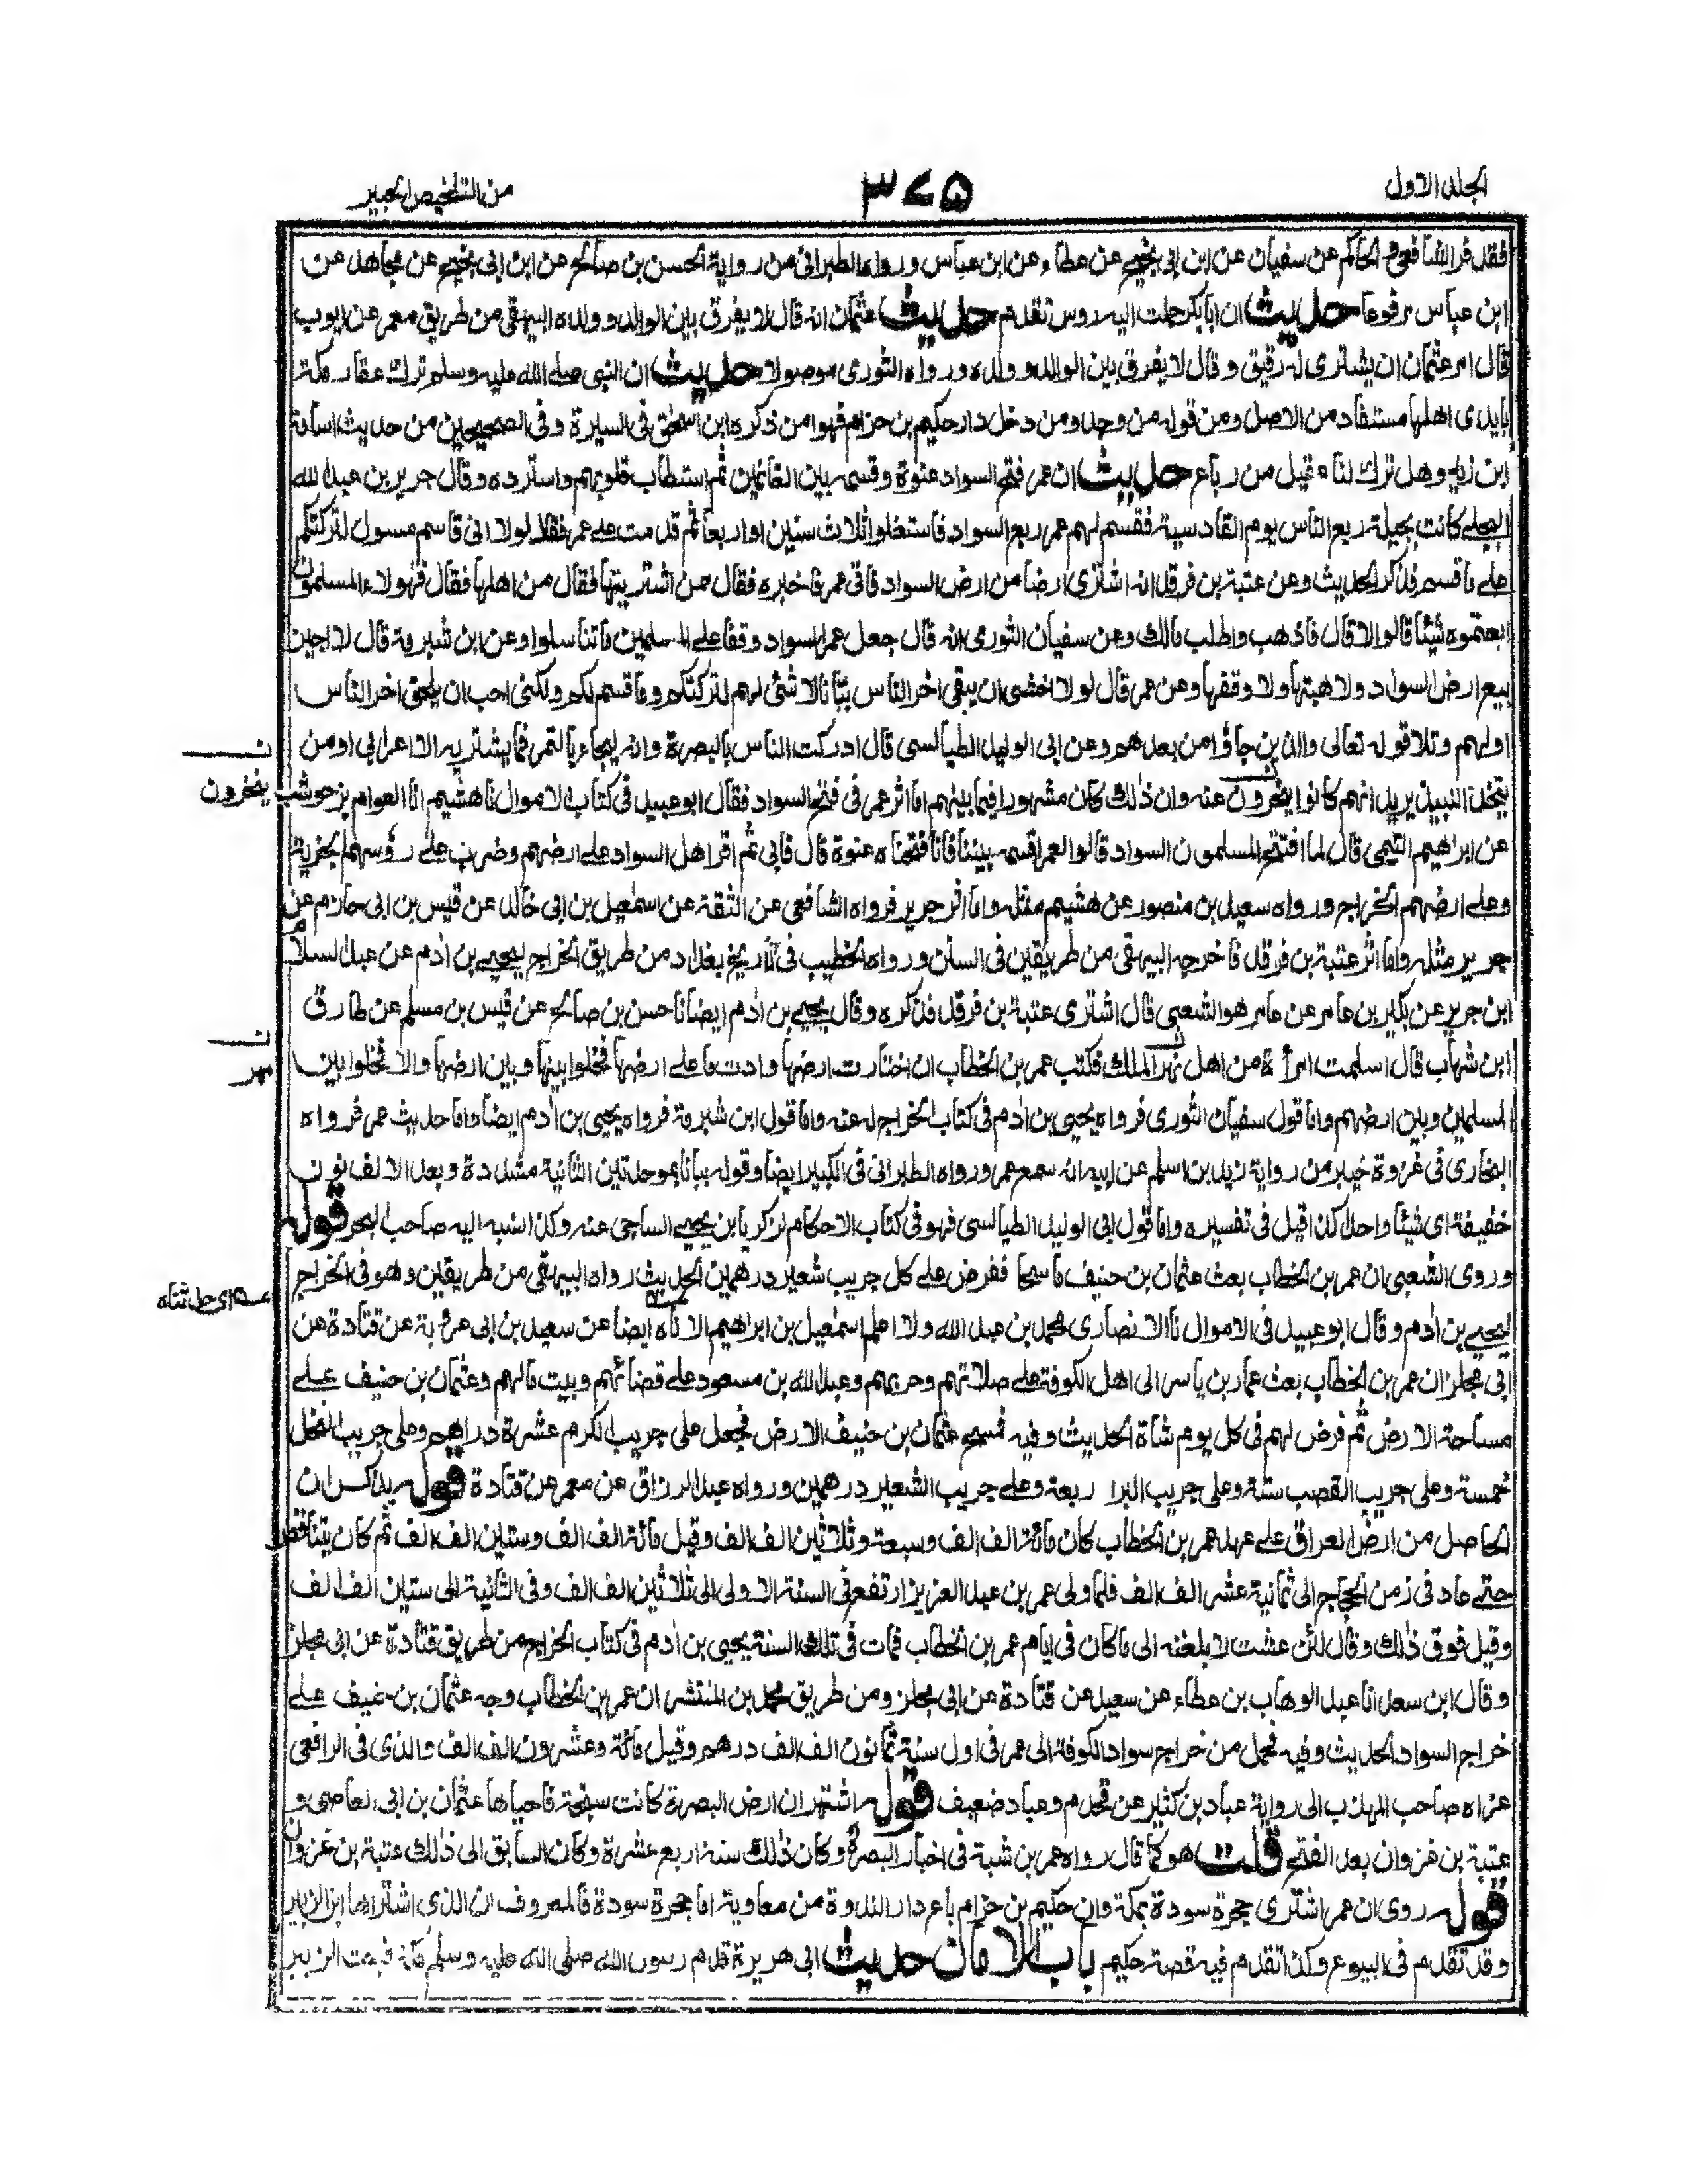 الجلد الاول
٣٧٥
من التلخيص الحبير
فقد فر الشافعي والحاكم عن سفيان عن ابن ابي نجيح عن عطاء عن ابن عباس ورواه الطبراني من رواية الحسن بن صالح عن ابن ابي نجيح عن مجاهد عن
ابن عباس مرفوعا حديث ان ابا بكر حملت اليه روس تقدم حديث عثمان انه قال لا يفرق بين الوالد وولده البيهقي من طريق معمر عن ايوب
قال امر عثمان ان يشترى له رقيق وقال لا يفرق بين الوالد وولده ورواه الثوري موصولا حديث ان النبي صلے الله عليه وسلم ترك عقار مكة
بايدي اهلها مستفاد من الاصل ومن قوله من وجد ومن دخل دار حكيم بن حزام فهو امن ذكره ابن اسحق في السيرة وفي الصحيحين من حديث اسامة
ابن زيد وهل ترك لنا عقيل من رباع حديث ان عمر فتح السواد عنوة وقسمه بين الغانمين ثم استطاب قلوبهم واسترده وقال جرير بن عبد الله
البجلے كانت بجيلة ربع الناس يوم القادسية فقسم لهم عمر ربع السواد فاستغلوا ثلاث سنين او اربعا ثم قدمت علے عمر فقال لولا اني قاسم مسول لتركتكم
علے ما قسم فذكر الحديث وعن عتبة بن فرقد انه اشترى ارضا من ارض السواد فاتى عمر فاخبره فقال ممن اشتريتها فقال من اهلها فقال فهولاء المسلمون
ابعتموه شيئا قالوا لا قال فاذهب واطلب مالك وعن سفيان الثوري انه قال جعل عمر السواد وقفا علے المسلمين ما تناسلوا وعن ابن شبرمة قال لا اجيز
بيع ارض السواد ولا هبتها ولا وقفها وعن عمر قال لولا اخشى ان يبقى اخر الناس ببانا لا شئ لهم لتركتكم وما قسم لكم ولكني احب ان يلحق اخر الناس
اولهم وتلا قوله تعالى والذين جاؤا من بعدهم وعن ابي الوليد الطيالسي قال ادركت الناس بالبصرة وانه ليجاء بالتمر فما يشتريه الا اعرابي او من
يتخذ النبيذ يريد انهم كانوا يتحرون عنه وان ذلك كان مشهورا فيما بينهم اما اثر عمر في فتح السواد فقال ابو عبيد في كتاب الاموال نا هشيم انا العوام بن حوشب
عن ابراهيم التيمي قال لما افتتح المسلمون السواد قالوا لعمر اقسمه بيننا فانا فتحناه عنوة قال فابى ثم اقر اهل السواد علے ارضهم وضرب علے رؤسهم الجزية
وعلے ارضهم الخراج ورواه سعيد بن منصور عن هشيم مثله واما اثر جرير فرواه الشافعي عن الثقة عن اسمعيل بن ابي خالد عن قيس بن ابي حازم عن
جرير مثله واما اثر عتبة بن فرقد فاخرجه البيهقي من طريقين في السنن ورواه الخطيب في تاريخ بغداد من طريق الخراج ليحيے بن ادم عن عبد السلام
ابن جرير عن بكير بن عامر عن عامر هو الشعبي قال اشترى عتبة بن فرقد فذكره وقال يحيے بن ادم ايضا نا حسن بن صالح عن قيس بن مسلم عن طارق
ابن شهاب قال اسلمت امرأة من اهل نهر الملك فكتب عمر بن الخطاب ان اختارت ارضها وادت ما علے ارضها فخلوا بينها وبين ارضها والا فخلوا بين
المسلمين وبين ارضهم واما قول سفيان الثوري فرواه يحيى بن ادم في كتاب الخراج له عنه واما قول ابن شبرمة فرواه يحيى بن ادم ايضا واما حديث عمر فرواه
البخاري في غزوة خيبر من رواية زيد بن اسلم عن ابيه انه سمع عمر ورواه الطبراني في الكبير ايضا وقوله ببانا بموحدتين الثانية مشددة وبعد الالف نون
خفيفة اى شيئا واحدا كذا قيل في تفسيره واما قول ابي الوليد الطيالسي فهو في كتاب الاحكام لزكريا بن يحيے الساجي عنه وكذا نسبه اليه صاحب البحر قوله
وروى الشعبي ان عمر بن الخطاب بعث عثمان بن حنيف ماسحا ففرض علے كل جريب شعير درهمين الحديث رواه البيهقي من طريقين وهو في الخراج
ليحيے بن ادم وقال ابو عبيد في الاموال نا الانصاري محمد بن عبد الله ولا اعلم اسمعيل بن ابراهيم الا ناه ايضا عن سعيد بن ابي عروبة عن قتادة عن
ابي مجلز ان عمر بن الخطاب بعث عمار بن ياسر الى اهل الكوفة علے صلاتهم وحربهم وعبد الله بن مسعود علے قضائهم وبيت مالهم وعثمان بن حنيف علے
مساحة الارض ثم فرض لهم في كل يوم شاة الحديث وفيه فمسح عثمان بن حنيف الارض فجعل على جريب الكرم عشرة دراهم وعلى جريب النخل
خمسة وعلى جريب القصب ستة وعلى جريب البر اربعة وعلے جريب الشعير درهمين ورواه عبد الرزاق عن معمر عن قتادة قوله يذكر ان
الحاصل من ارض العراق علے عهد عمر بن الخطاب كان مائة الف الف وسبعة وثلاثين الف الف وقيل مائة الف الف وستين الف الف ثم كان يتناقص
حتے عاد في زمن الحجاج الى ثمانية عشر الف الف فلما ولى عمر بن عبد العزيز ارتفع في السنة الاولى الى ثلاثين الف الف وفي الثانية الى ستين الف الف
وقيل فوق ذلك وقال لئن عشت لابلغنه الى ما كان في ايام عمر بن الخطاب فمات في تلك السنة يحيى بن ادم في كتاب الخراج من طريق قتادة عن ابي مجلز
وقال ابن سعد انا عبد الوهاب بن عطاء عن سعيد عن قتادة عن ابي مجلز ومن طريق محمد بن المنتشر ان عمر بن الخطاب وجه عثمان بن حنيف علے
خراج السواد الحديث وفيه فحمل من خراج سواد الكوفة الى عمر في اول سنة ثمانون الف الف درهم وقيل مائة وعشرون الف الف فالذى في الرافعي
عزاه صاحب المهذب الى رواية عباد بن كثير عن قحذم وعباد ضعيف قوله اشتهر ان ارض البصرة كانت سبخة فاحياها عثمان بن ابي العاصي و
عتبة بن غزوان بعد الفتح قلت هو كما قال رواه عمر بن شبة في اخبار البصرة وكان ذلك سنة اربع عشرة وكان السابق الى ذلك عتبة بن غزوان
قوله روى ان عمر اشترى حجرة سودة بمكة وان حكيم بن حزام باع دار الندوة من معاوية اما حجرة سودة فالمعروف ان الذي اشتراها ابن الزبير
وقد تقدم في البيوع وكذا تقدم فيه قصة حكيم باب الامان حديث ابي هريرة قدم رسول الله صلى الله عليه وسلم مكة فبعث الزبير
يتحرون
نهر
عه اى حدثناه